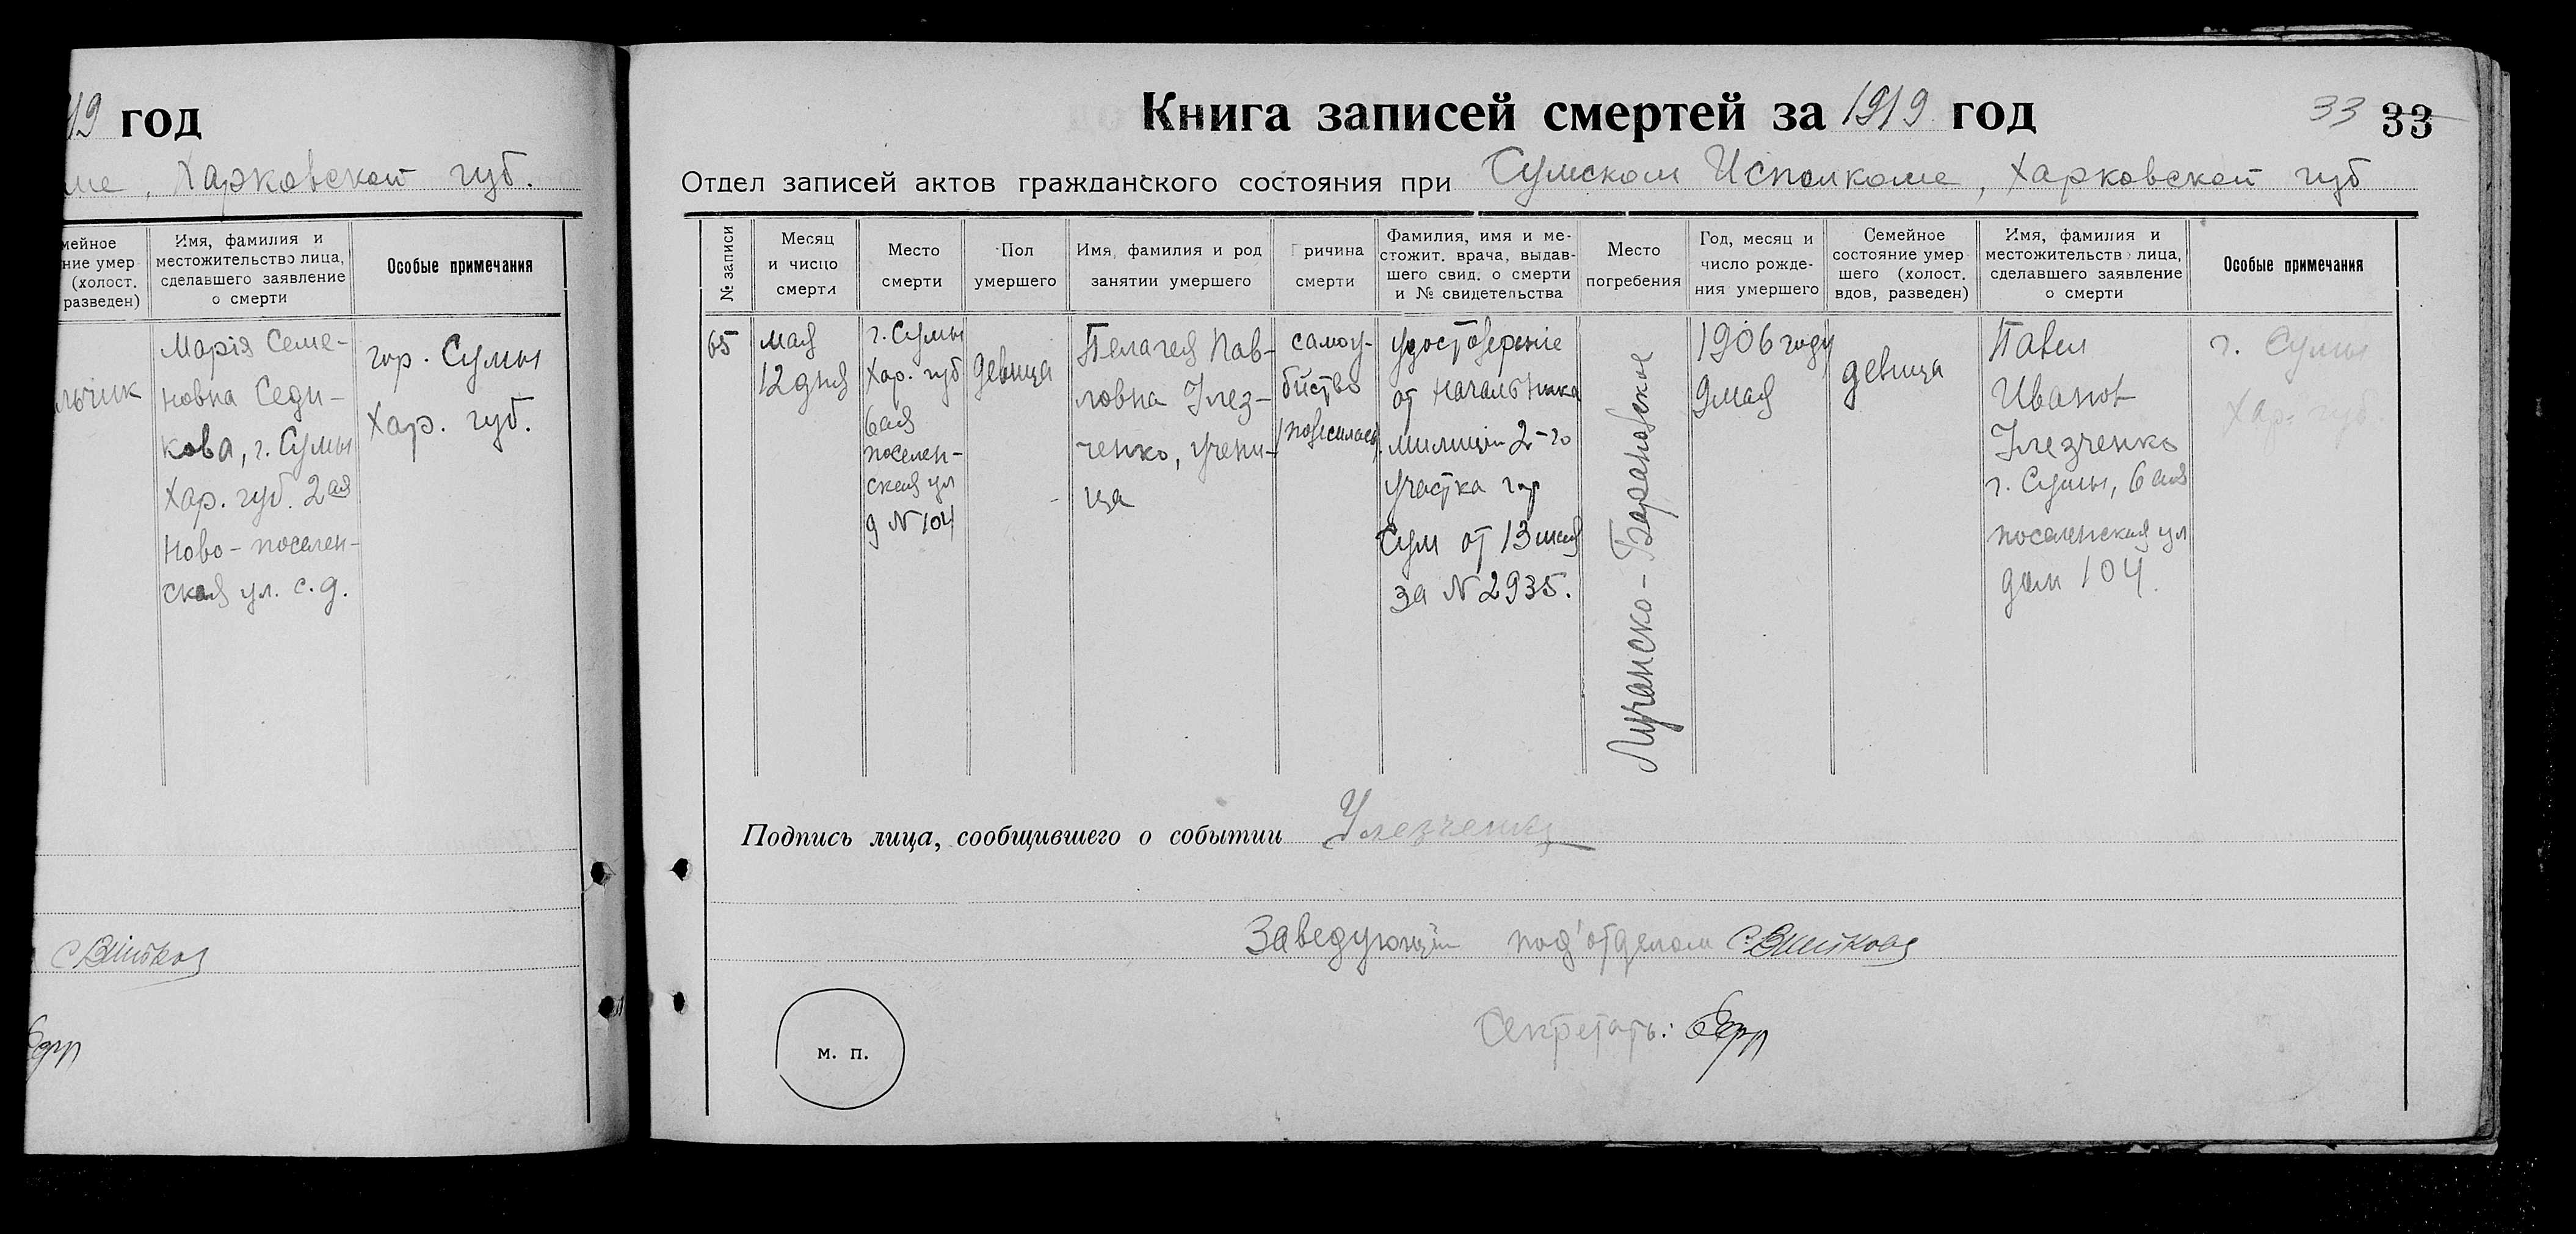 19 год
ме, Харковской губ.
мейное
ние умер
(холост.
разведен)
Имя, фамилия и
местожительство лица,
сделавшего заявление
о смерти
Особые примечания
льчик
Марія Семе-
новна Седи-
кова, г. Сумы
Хар. губ. 2ая
Ново-поселен-
ская ул. с. д.
гор. Сумы
Хар. губ.
Книга записей смертей за 1919 год
33 33
Отдел записей актов гражданского состояния при Сумском Исполкоме, Харковской губ
№ записи
Месяц
и число
смерти
Место
смерти
Пол
умершего
Имя, фамилия и род
занятии умершего
Причина
смерти
Фамилия, имя и ме-
стожит. врача, выдав-
шего свид. о смерти
и № свидетельства
Место
погребения
Год, месяц и
число рожде-
ния умершего
Семейное
состояние умер
шего (холост.
вдов, разведен)
Имя, фамилия и
местожительство лица,
сделавшего заявление
о смерти
Особые примечания
65
мая
12 дня
г. Сумы
Хар. губ
6ая
поселен-
ская ул
д N 104
девица
Пелагея Пав-
ловна Улез-
ченко, учени-
ца
самоу-
бйство
(повесилась)
удостоверенiе
от начальника
милицiи 2-го
участка гор
Сум от 13 мая
за N 2935.
Лучанско-Барановское
1906 году
9 мая
девица
Павел
Иванов
Улезченко
г. Сумы, 6 ая
поселенская ул
дом 104.
г. Сумы
Хар. губ.
Подпись лица, сообщившего о событии Улезченко
Заведующiй под'отделом
Секретарь:
м. п.